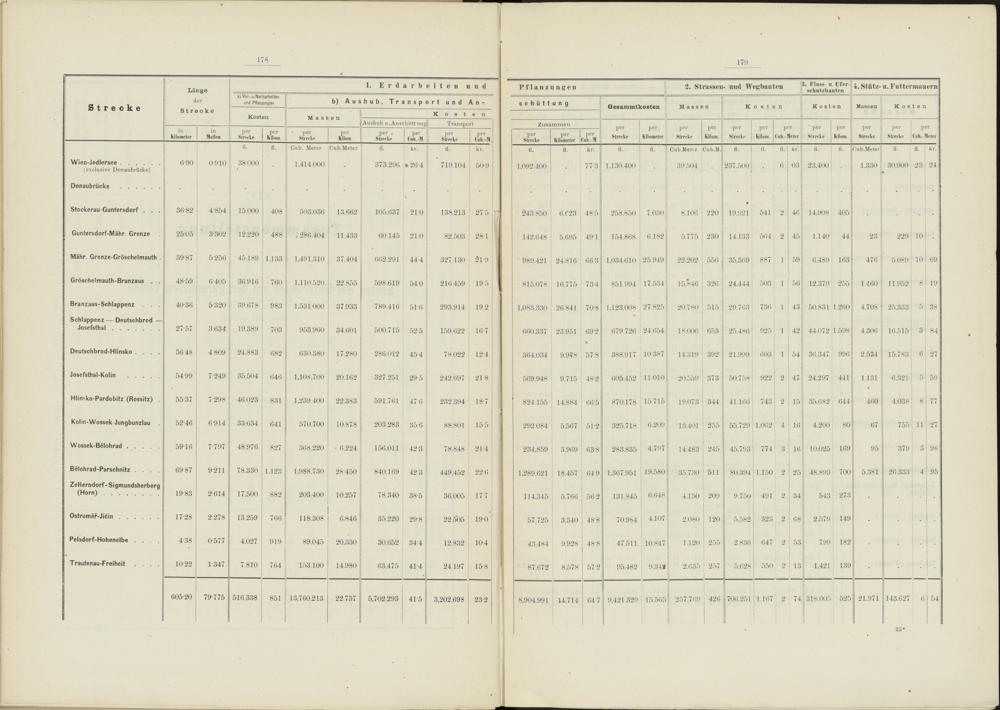 178
Strecke
Länge
der
Strecke
in Kilometer
in Meilen
1. Erdarbeiten und
a) Vor- u. Nacharbeiten
und Pflanzungen
Kosten
per Strecke
per Kilom.
b) Aushub, Transport und An-
Massen
Kosten
Aushub u. Anschüttung
Transport
per Strecke
per Kilom.
per Strecke
per Cub.-M.
per Strecke
per Cub.-M.
fl. fl. Cub. Meter Cub. Meter fl. kr. fl. kr.
Wien-Jedlersee 6·90 0·910 38.000 . 1,414.000 . 373.296 26·4 719.104 50·9
(exclusive Donaubrücke)
Donaubrücke
Stockerau-Guntersdorf 36·82 4·854 15.000 408 503.036 13.662 105.637 21·0 138.213 27·5
Guntersdorf-Mähr. Grenze 25·05 3·302 12.220 488 286.404 11.433 60.145 21·0 82.503 28·1
Mähr. Grenze-Gröschelmauth 39·87 5·256 45.189 1.133 1,491.310 37.404 662.291 44·4 327.130 21·9
Gröschelmauth-Branzaus 48·59 6·405 36.916 760 1,110.520 22.855 598.619 54·0 216.459 19·5
Branzaus-Schlappenz 40·36 5·320 39.678 983 1,531.000 37.933 789.416 51·6 293.914 19·2
Schlappenz — Deutschbrod —
Josefsthal 27·57 3·634 19.389 703 953.960 34.601 500.715 52·5 159.622 16·7
Deutschbrod-Hlinsko 36·48 4·809 24.883 682 630.380 17.280 286.012 45·4 78.022 12·4
Josefsthal-Kolin 54·99 7·249 35.504 646 1,108.700 20.162 327.251 29·5 242.697 21·8
Hlinsko-Pardubitz (Rossitz) 55·37 7·298 46.023 831 1,239.400 22.383 591.761 47·6 232.394 18·7
Kolin-Wossek-Jungbunzlau 52·46 6·914 33.634 641 570.700 10.878 203.283 35·6 88.801 15·5
Wossek-Bělohrad 59·16 7·797 48.976 827 368.220 6.224 156.011 42·3 78.848 21·4
Bělohrad-Parschnitz 69·87 9·211 78.330 1.123 1,988.730 28·450 840.169 42·3 449.452 22·6
Zellerndorf-Sigmundsherberg
(Horn) 19·83 2·614 17.500 882 203.400 10·257 78.340 38·5 36.005 17·7
Ostroměř-Jičin 17·28 2·278 13.259 766 118.308 6.846 35.220 29·8 22.505 19·0
Pelsdorf-Hohenelbe 4·38 0·577 4.027 919 89.045 20.330 30.652 34·4 12.832 10·4
Trautenau-Freiheit 10·22 1·347 7.810 764 153.100 14.980 63.475 41·4 24.197 15·8
605·20 79·775 516.338 851 13,760.213 22.737 5,702.293 41·5 3,202.698 23·2
179
Pflanzungen
schüttung
Zusammen
per Strecke
per Kilometer
per Cub.-M.
Gesammtkosten
per Strecke
per Kilom.
2. Strassen- und Wegbauten
Massen
Kosten
per Strecke
per Kilom.
per Strecke
per Kilom.
per Cub.-Meter
3. Fluss- u. Ufer-
schutzbauten
Kosten
per Strecke
per Kilom.
4. Stütz- u. Futtermauern
Massen
Kosten
per Strecke
per Strecke
per Kilom.
per Cub.-M.
fl. fl. kr. fl. fl. Cub.Meter Cub.M. fl. fl. fl. kr. fl. fl. Cub.Meter fl. fl. kr.
1,092.400 . 77·3 1,130.400 . 39.504 . 237.500 . 6 03 23.400 . 1.330 30.900 23 24
243.850 6.623 48·5 258.850 7.030 8.106 220 19.921 541 2 46 14.908 405
142.648 5.695 49·1 154.868 6.182 5.775 230 14.133 564 2 45 1.140 44 23 229 10 .
989.421 24.816 66·3 1,034.610 25.949 22.202 556 35.369 887 1 59 6.489 163 476 5.089 10 69
815.078 16.775 73·4 851.994 17.534 15.846 326 24.444 503 1 56 12.379 255 1.460 11.952 8 19
1,083.330 26.841 70·8 1,123.008 27.825 20.780 515 29.763 736 1 43 50.831 1.260 4.708 25.333 5 38
660.337 23.951 69·2 679.726 24.654 18.006 653 25.486 925 1 42 44.072 1.598 4.306 16.515 3 84
364.034 9.978 57·8 388.917 10.387 14.319 392 21.999 603 1 54 36.347 996 2.534 15.783 6 27
569.948 9.715 48·2 605.452 11.010 20.559 373 50.758 922 2 47 24.297 441 1.131 6.321 5 59
824.155 14.884 66·5 870.178 15.715 19.073 344 41.166 743 2 15 35.682 644 460 4.038 8 77
292.084 5.567 51·2 325.718 6.209 13.401 255 55.729 1.062 4 16 4.200 80 67 755 11 27
234.859 3.969 63·8 283.835 4.797 14.483 245 45.793 774 3 16 10.025 169 95 379 3 98
1,289.621 18.457 64·9 1,367.951 19.580 35.730 511 80.394 1.150 2 25 48.893 700 5.381 26.333 4 95
114.345 5.766 56·2 131.845 6.648 4.150 209 9.750 491 2 34 543 273
57.725 3.340 48·8 70.984 4.107 2.080 120 5.582 323 2 68 2.579 149
43.484 9.928 48·8 47.511 10.847 1.120 255 2.836 647 2 53 799 182
87.672 8.578 57·2 95.482 9.342 2.635 257 5.628 550 2 13 1.421 139
8,904.991 14.714 64·7 9,421.329 15.565 257.769 426 706.251 1.167 2 74 318.005 525 21.971 143.627 6 54
23*